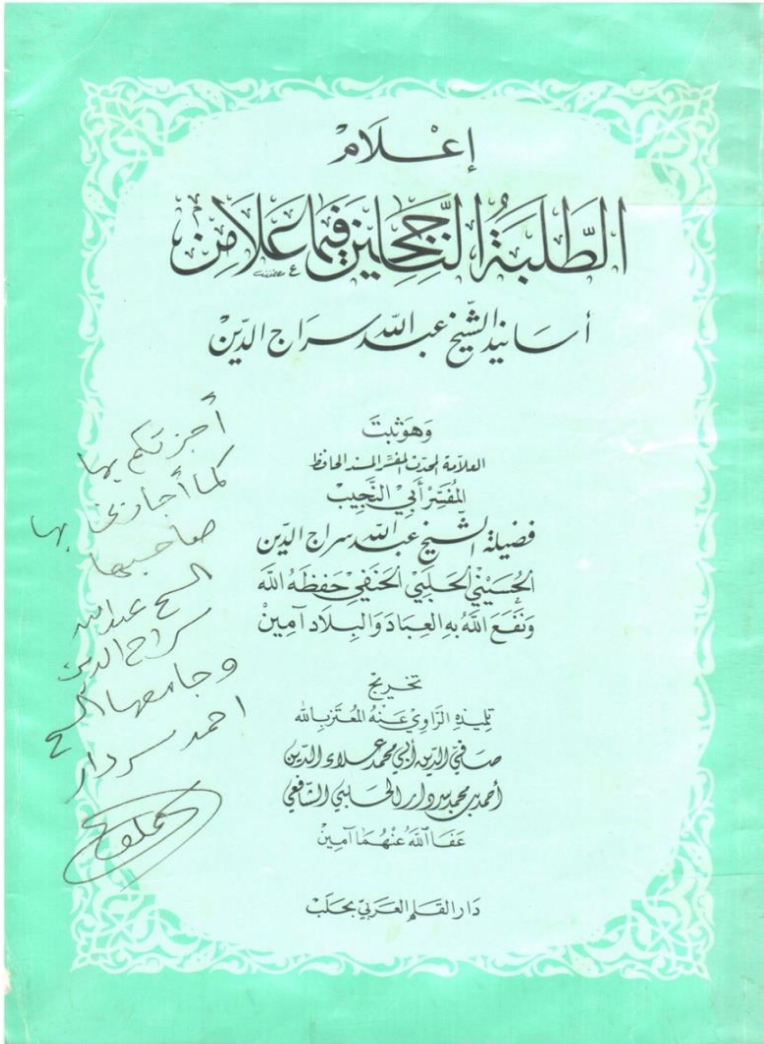 إعْلَام
الطَّلَبَةُ النَّاجِحِين فِيمَا عَلَا مِنْ
أسانيد الشيخ عبد الله سراج الدين
وَهُوَ ثَبَتُ
العلامة المحدث المفسّر المسند الحافظ
المُفَسِّر أَبِي النَّجِيب
فضيلة الشيخ عبد الله سراج الدين
الحُسَيْنِي الحَلَبِي الحَنَفِي حَفِظَهُ اللَّه
وَنَفَعَ اللَّهُ بِهِ العِبَادَ وَالبِلَادَ آمِينْ
تخريج
تلميذه الرَّاوِي عَنْهُ المُعْتَز بالله
صفي الدين أبي محمد علاء الدين
أحمد بن محمد سردار الحلبي الشافعي
عَفَا اللَّه عَنْهُمَا آمِينْ
دَار القَلَم العَرَبِي بحَلَبْ
أجزتكم بها
كما أجازني بها
صاحبها
الشيخ عبد الله
سراج الدين
وجامعها الشيخ
احمد سردار